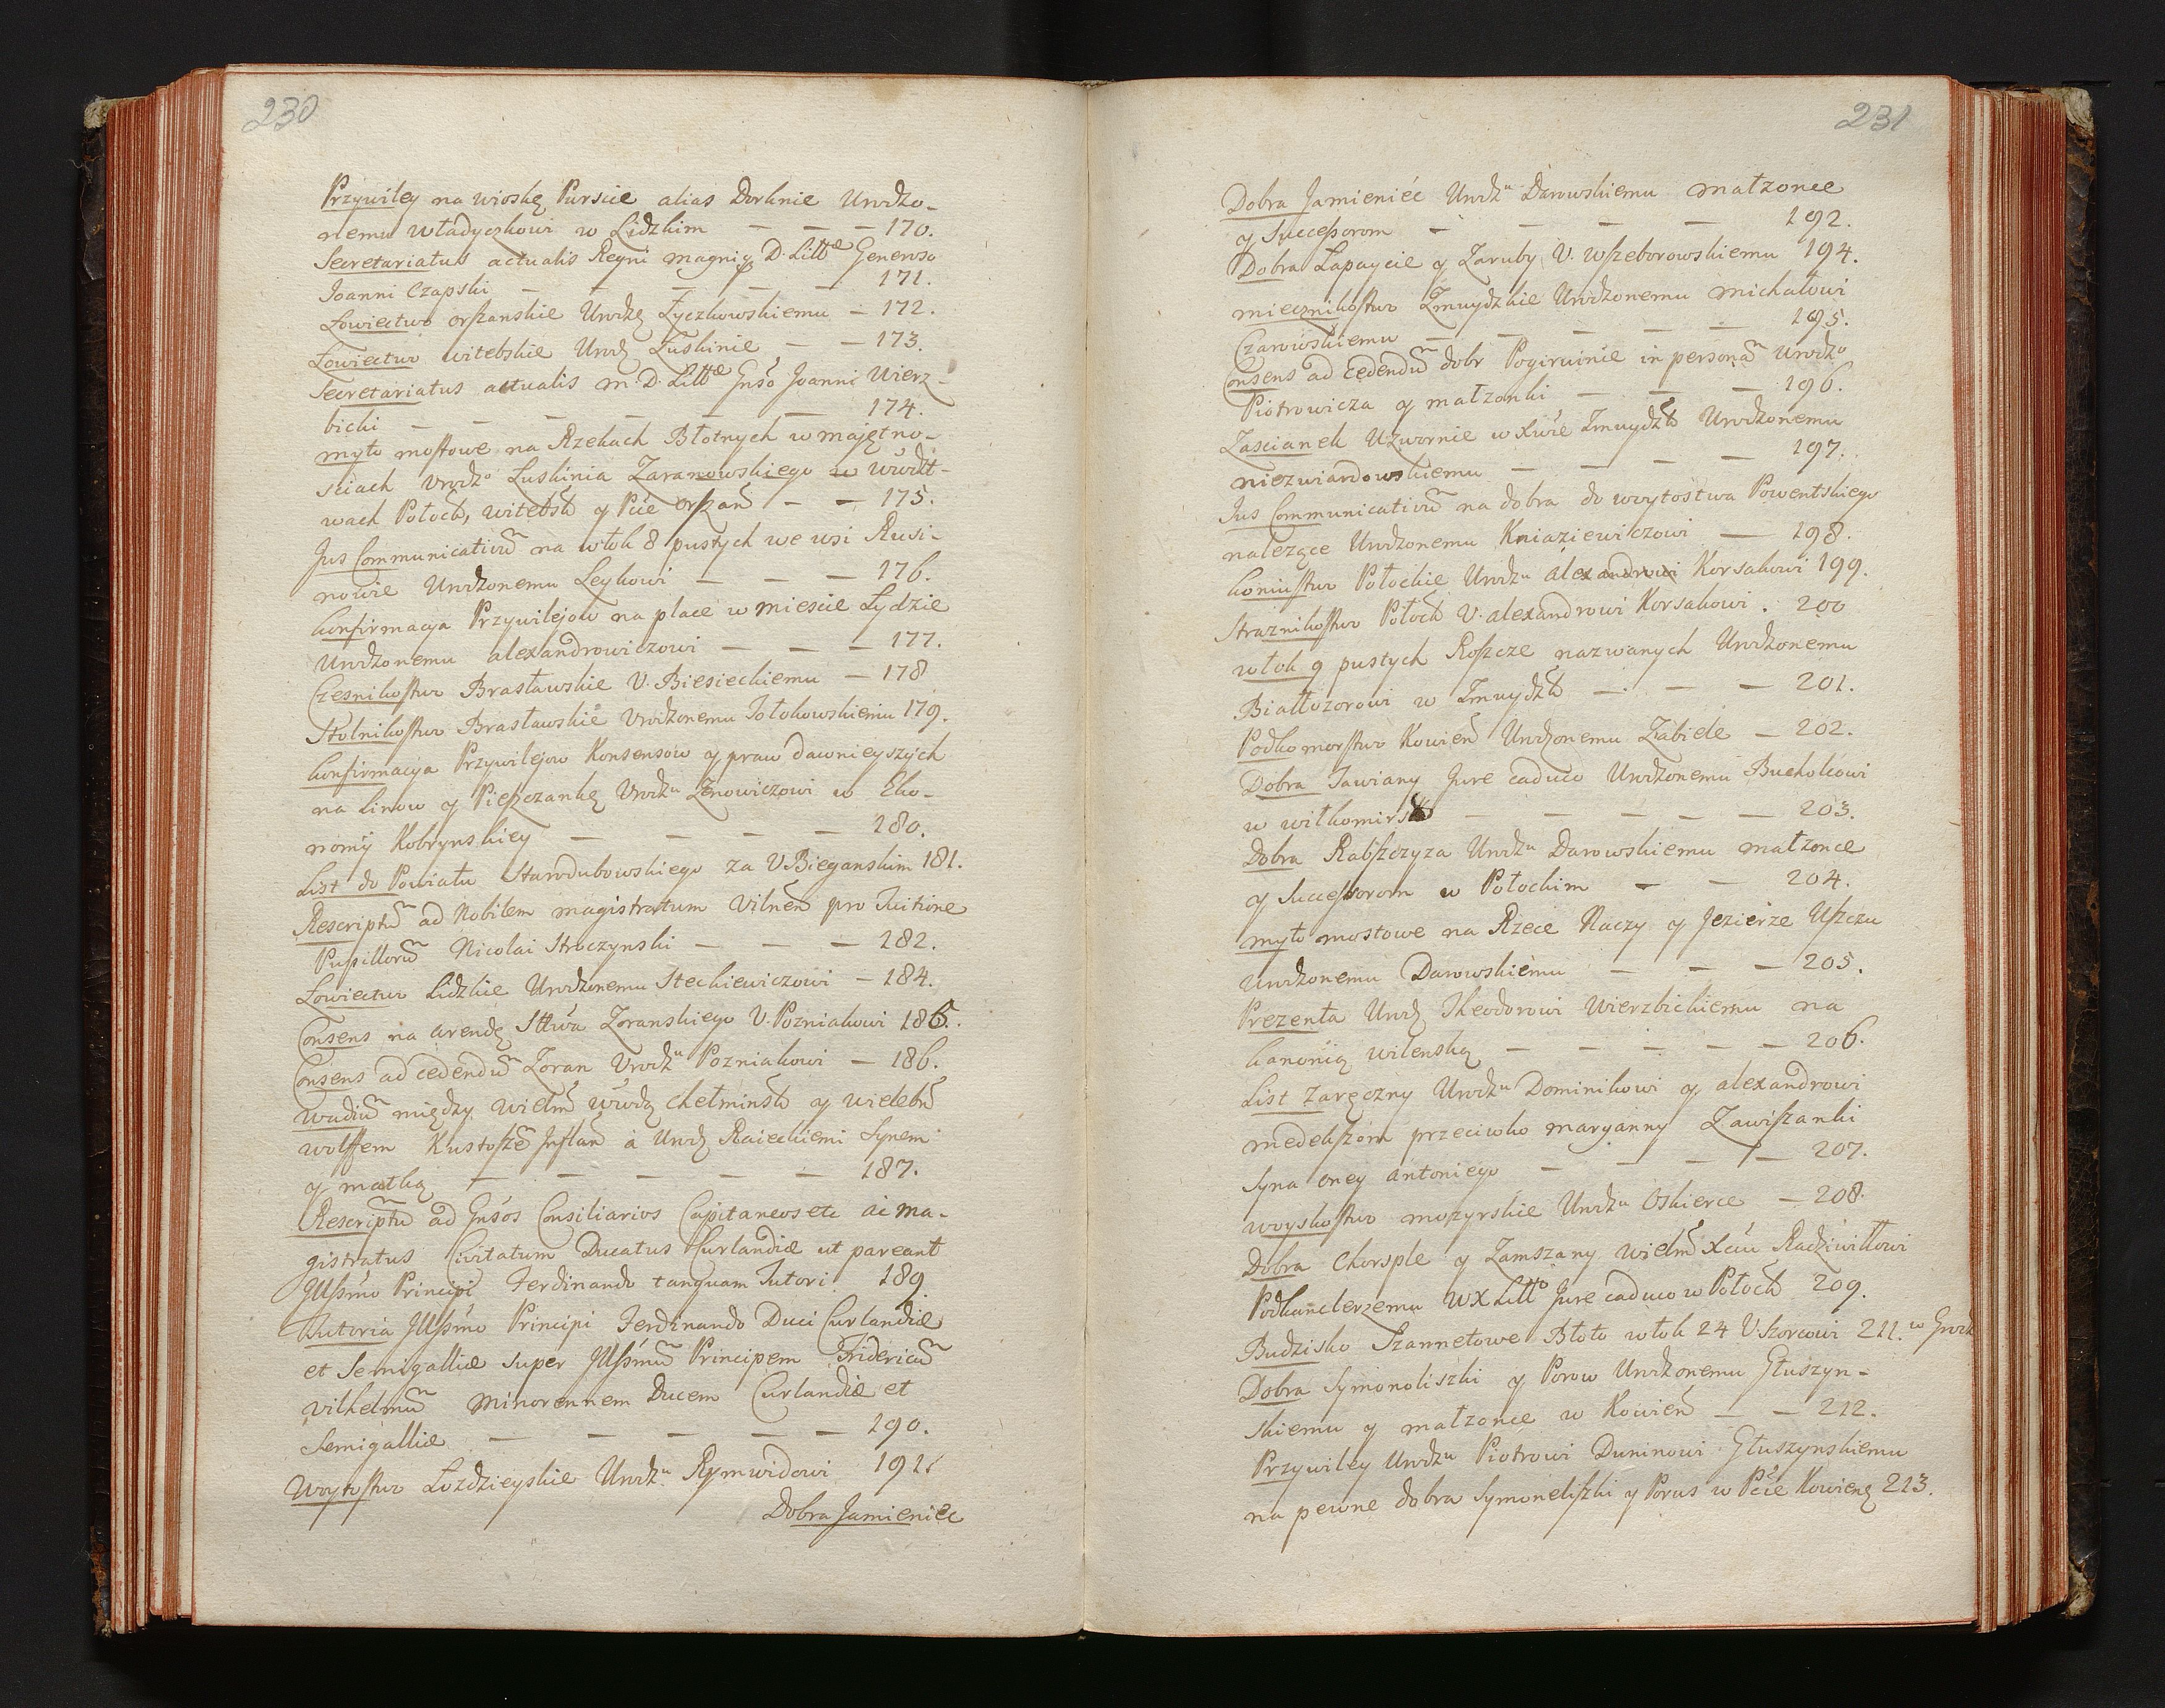 230
Przywiley na wioskę Purscie alias Dorknie Urodzo-
nemu Władyczkowi w Lidzkim — — — 170.
Secretariatus actualis Regni magniq D. Littæ Generoso
Joanni Czapski — — — — — 171.
Łowiectwo orszanskie Urodzę Łyczkowskiemu — 172.
Łowiectwo witebskie Urodz Łuskinie — — 173.
Secretariatus actualis M. D. Littæ Gnso Joanni Wierz-
bicki — — — — — 174.
myto mostowe na Rzekach Błotnych w majętno-
sciach Urodzo Łuskinia Zaranowskiego w Wwdzt-
wach Połock, witebsk y Pcie orszan — — 175.
Jus Communicativu na włok 8 pustych we wsi Rusi-
nowie Urodzonemu Leykowi — — — 176.
Konfirmacya Przywilejow na place w miescie Łydzie
Urodzonemu alexandrowiczowi — — — 177.
Czesnikostwo Brasławskie U. Biesieckiemu — 178
Stolnikostwo Brasławskie Urodzonemu Tołokowskiemu 179.
Konfirmacya Przywilejow Konsensow y praw dawnieyszych
na Linow y Pieszczankę Urodzu Zenowiczowi w Eko-
nomij Kobrynskiey — — — — 280.
List do Powiatu Starodubowskiego za U Bieganskim 181.
Rescriptu ad Nobilem magistratum Vilnen pro Tuitione
Pupilloru Nicolai Stroczynski — — — 282.
Łowiectwo Lidzkie Urodzonemu Steckiewiczowi — 184.
Consens na arendę Sttwa Zoranskiego U. Pozniakowi 185.
Consens ad cedendu Zoran Urodzu Pozniakowi — 186.
wadiu między wielm wwdą chełminsk y wielebn
wolffem Kustosze Inflan a Urodz Raieckiemi Synem
y matką — — — — — 187.
Rescriptu ad Gnsos Consiliarios Capitaneos etc ac ma-
gistratus Civitatum Ducatus Curlandiæ ut pareant
Illssmo Principi Ferdinando tanquam Tutori 189.
Tutoria Illssmo Principi Ferdinando Duci Curlandiæ
et Semigalliæ super Illssmu Principem Fridericu
Vilhelmu Minorennem Ducem Curlandiæ et
Semigalliæ — — — — — 290.
Woytostwo Łozdzieyskie Urodzu Rymwidowi 191.
Dobra Jamieniec
231
Dobra Jamieniec Urodzu Darowskiemu małzonce
y Successorom — — — — 192.
Dobra Łapaycie y Zaruby U. wszeborowskiemu 194.
miecznikostwo Zmuydzkie Urodzonemu michałowi
Czarowskiemu — — — — — 195.
Consens ad cedendu dobr Pogirwinie in persona Urodzo
Piotrowicza y małzonki — — — 196.
Zascianek Uzwornie w Xwie Zmuydzk Urodzonemu
niezwiardowskiemu — — — — 197.
Jus Communicativu na dobra do woytostwa Powentskiego
nalezące Urodzonemu Kniaziewiczowi — 198.
Koniustwo Połockie Urodzu alexandrowi Korsakowi 199.
Straznikostwo Połock U. alexandrowi Korsakowi. 200
włok 9 pustych Roszcze nazwanych Urodzonemu
Białłozorowi w Zmuydzk — — — 201.
Podkomorstwo Kowien Urodzonemu Zabiele — 202.
Dobra Tawiany Jure caduco Urodzonemu Bucholcowi
w wiłkomirsk — — — — — 203.
Dobra Rabszczyza Urodzu Darowskiemu małzonce
y Successorom w Połockim — — 204.
myto mostowe na Rzece Naczy y Jezierze Uszczu
Urodzonemu Darowskiemu — — — 205.
Prezenta Urodz Theodorowi Wierzbickiemu na
kanonią wilenską — — — — — 206.
List zaręczny Urodzu Dominikowi y alexandrowi
medekszom przeciwko maryanny Zawiszanki
Syna oney antoniego — — — — 207.
woyskostwo mozyrskie Urodzu Oskierce — 208.
Dobra Chorsple y Zamszany wielm Xciu Radziwiłłowi
Podkanclerzemu W X Litto Jure caduco w Połock 209.
Budzisko Szannetowe Błoto włok 24 U Szorcowi 211. w Grodz
Dobra Symonoliszki y Porow Urodzonemu Głuszyn-
skiemu y małzonce w Kowien — — 212.
Przywiley Urodzu Piotrowi Duninowi Głuszynskiemu
na pewne dobra Symoneliszki y Porus w Pcie Kowienę 213.